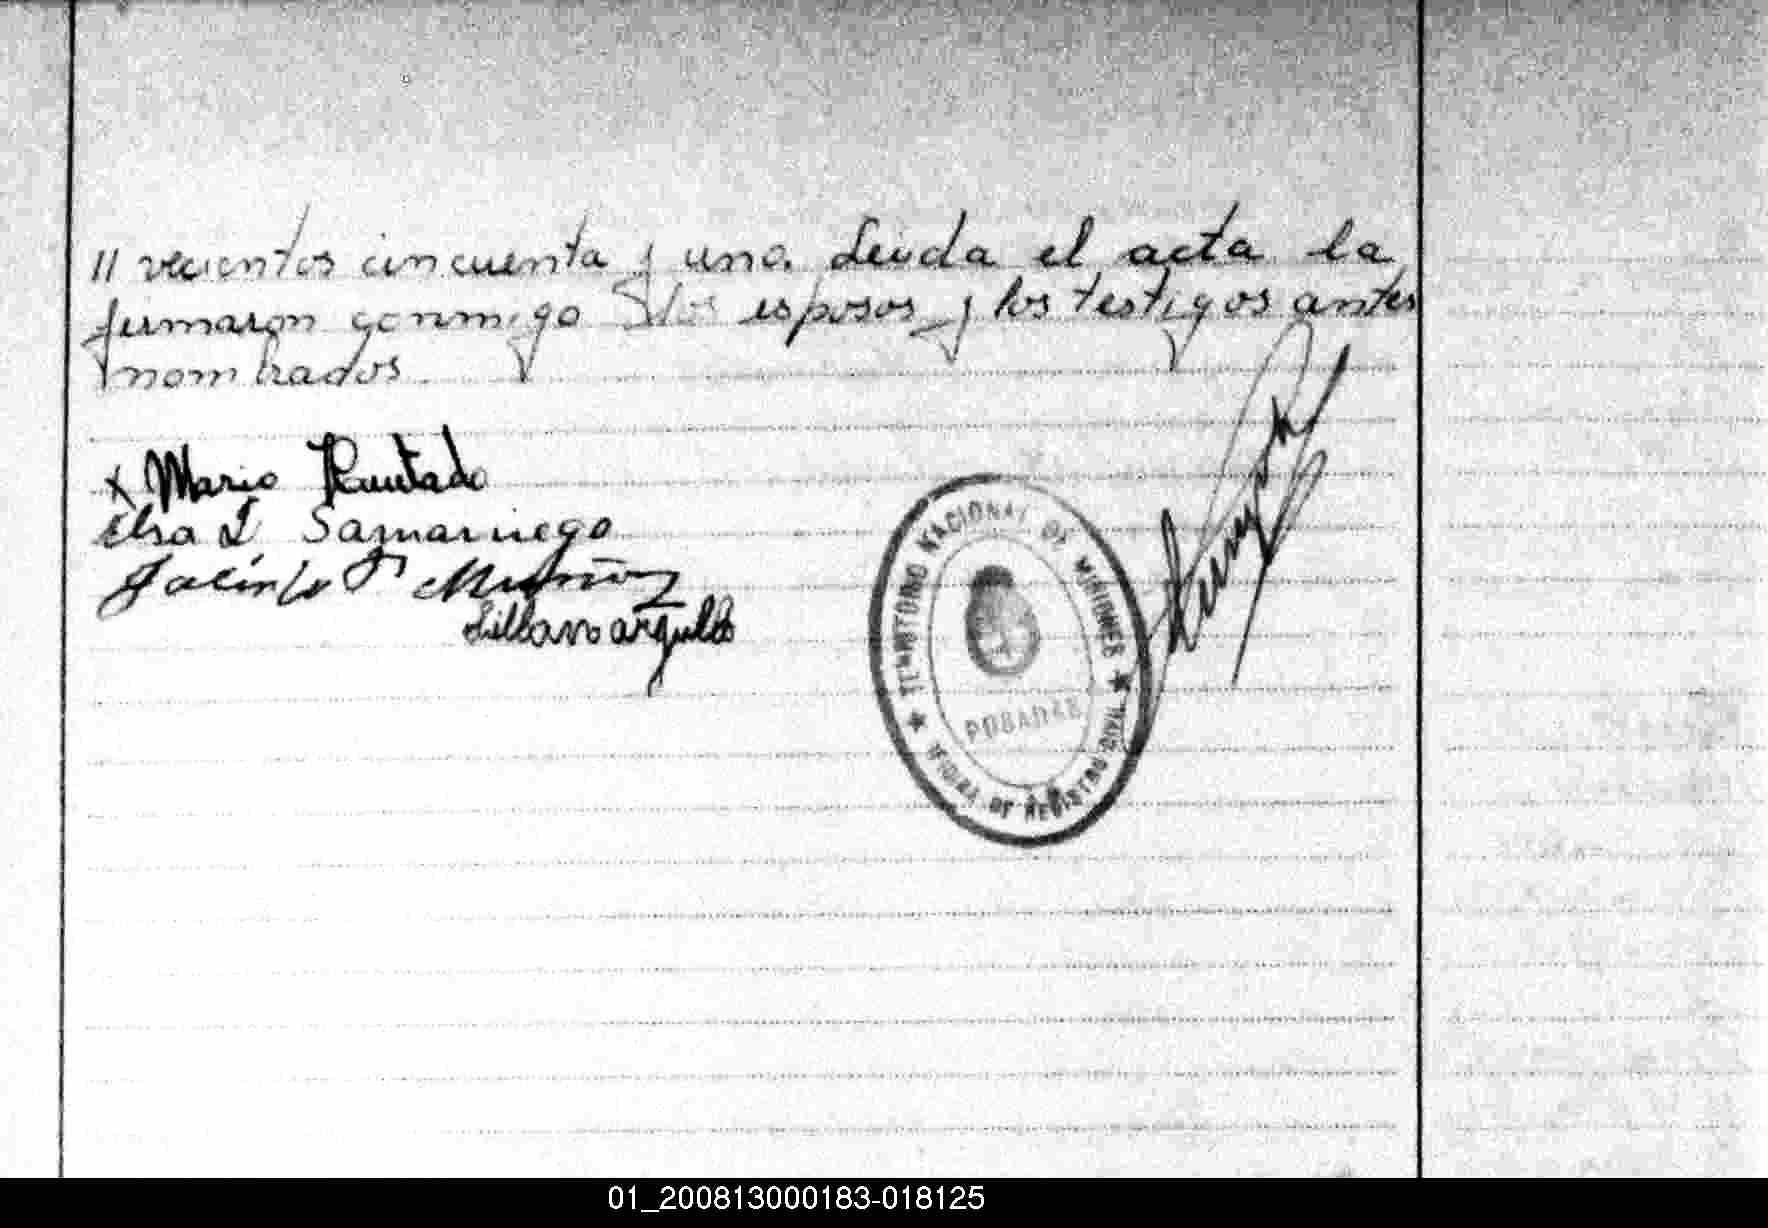 // vecientos cincuenta y uno. Leida el acta la
firmaron conmigo los esposos y los testigos antes
nombrados.
x Mario Hurtado
Elsa L Samaniego
Jacinto Muñoz
TERRITORIO NACIONAL DE MISIONES
POSADAS
OFICINA DE REGISTRO CIVIL
01_200813000183-018125